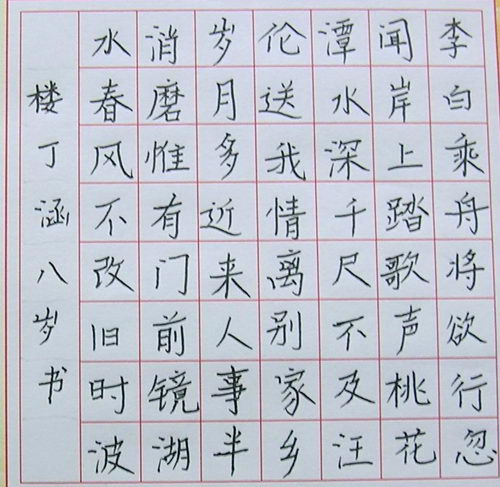 李白乘舟将欲行忽
闻岸上踏歌声桃花
潭水深千尺不及汪
伦送我情离别家乡
岁月多近来人事半
消磨惟有门前镜湖
水春风不改旧时波
楼丁涵八岁书